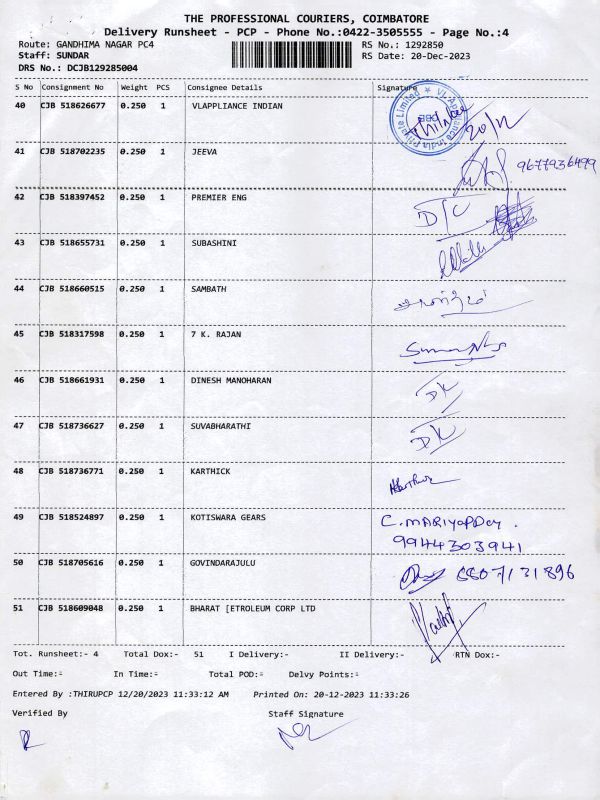 THE PROFESSIONAL COURIERS, COIMBATORE
Delivery Runsheet - PCP - Phone No.:0422-3505555 - Page No.:4
Route: GANDHIMA NAGAR PC4 RS No.: 1292850
Staff: SUNDAR RS Date: 20-Dec-2023
DRS No.: DCJB129285004
S No Consignment No Weight PCS Consignee Details Signature
40 CJB 518626677 0.250 1 VLAPPLIANCE INDIAN 20/12
41 CJB 518702235 0.250 1 JEEVA 9677936499
42 CJB 518397452 0.250 1 PREMIER ENG
43 CJB 518655731 0.250 1 SUBASHINI
44 CJB 518660515 0.250 1 SAMBATH
45 CJB 518317598 0.250 1 7 K. RAJAN
46 CJB 518661931 0.250 1 DINESH MANOHARAN DK
47 CJB 518736627 0.250 1 SUVABHARATHI DK
48 CJB 518736771 0.250 1 KARTHICK
49 CJB 518524897 0.250 1 KOTISWARA GEARS C.MARIYAPPAN.
9944303941
50 CJB 518705616 0.250 1 GOVINDARAJULU 8807131896
51 CJB 518609048 0.250 1 BHARAT [ETROLEUM CORP LTD
Tot. Runsheet:- 4 Total Dox:- 51 I Delivery:- II Delivery:- RTN Dox:-
Out Time:- In Time:- Total POD:- Delvy Points:-
Entered By :THIRUPCP 12/20/2023 11:33:12 AM Printed On: 20-12-2023 11:33:26
Verified By Staff Signature